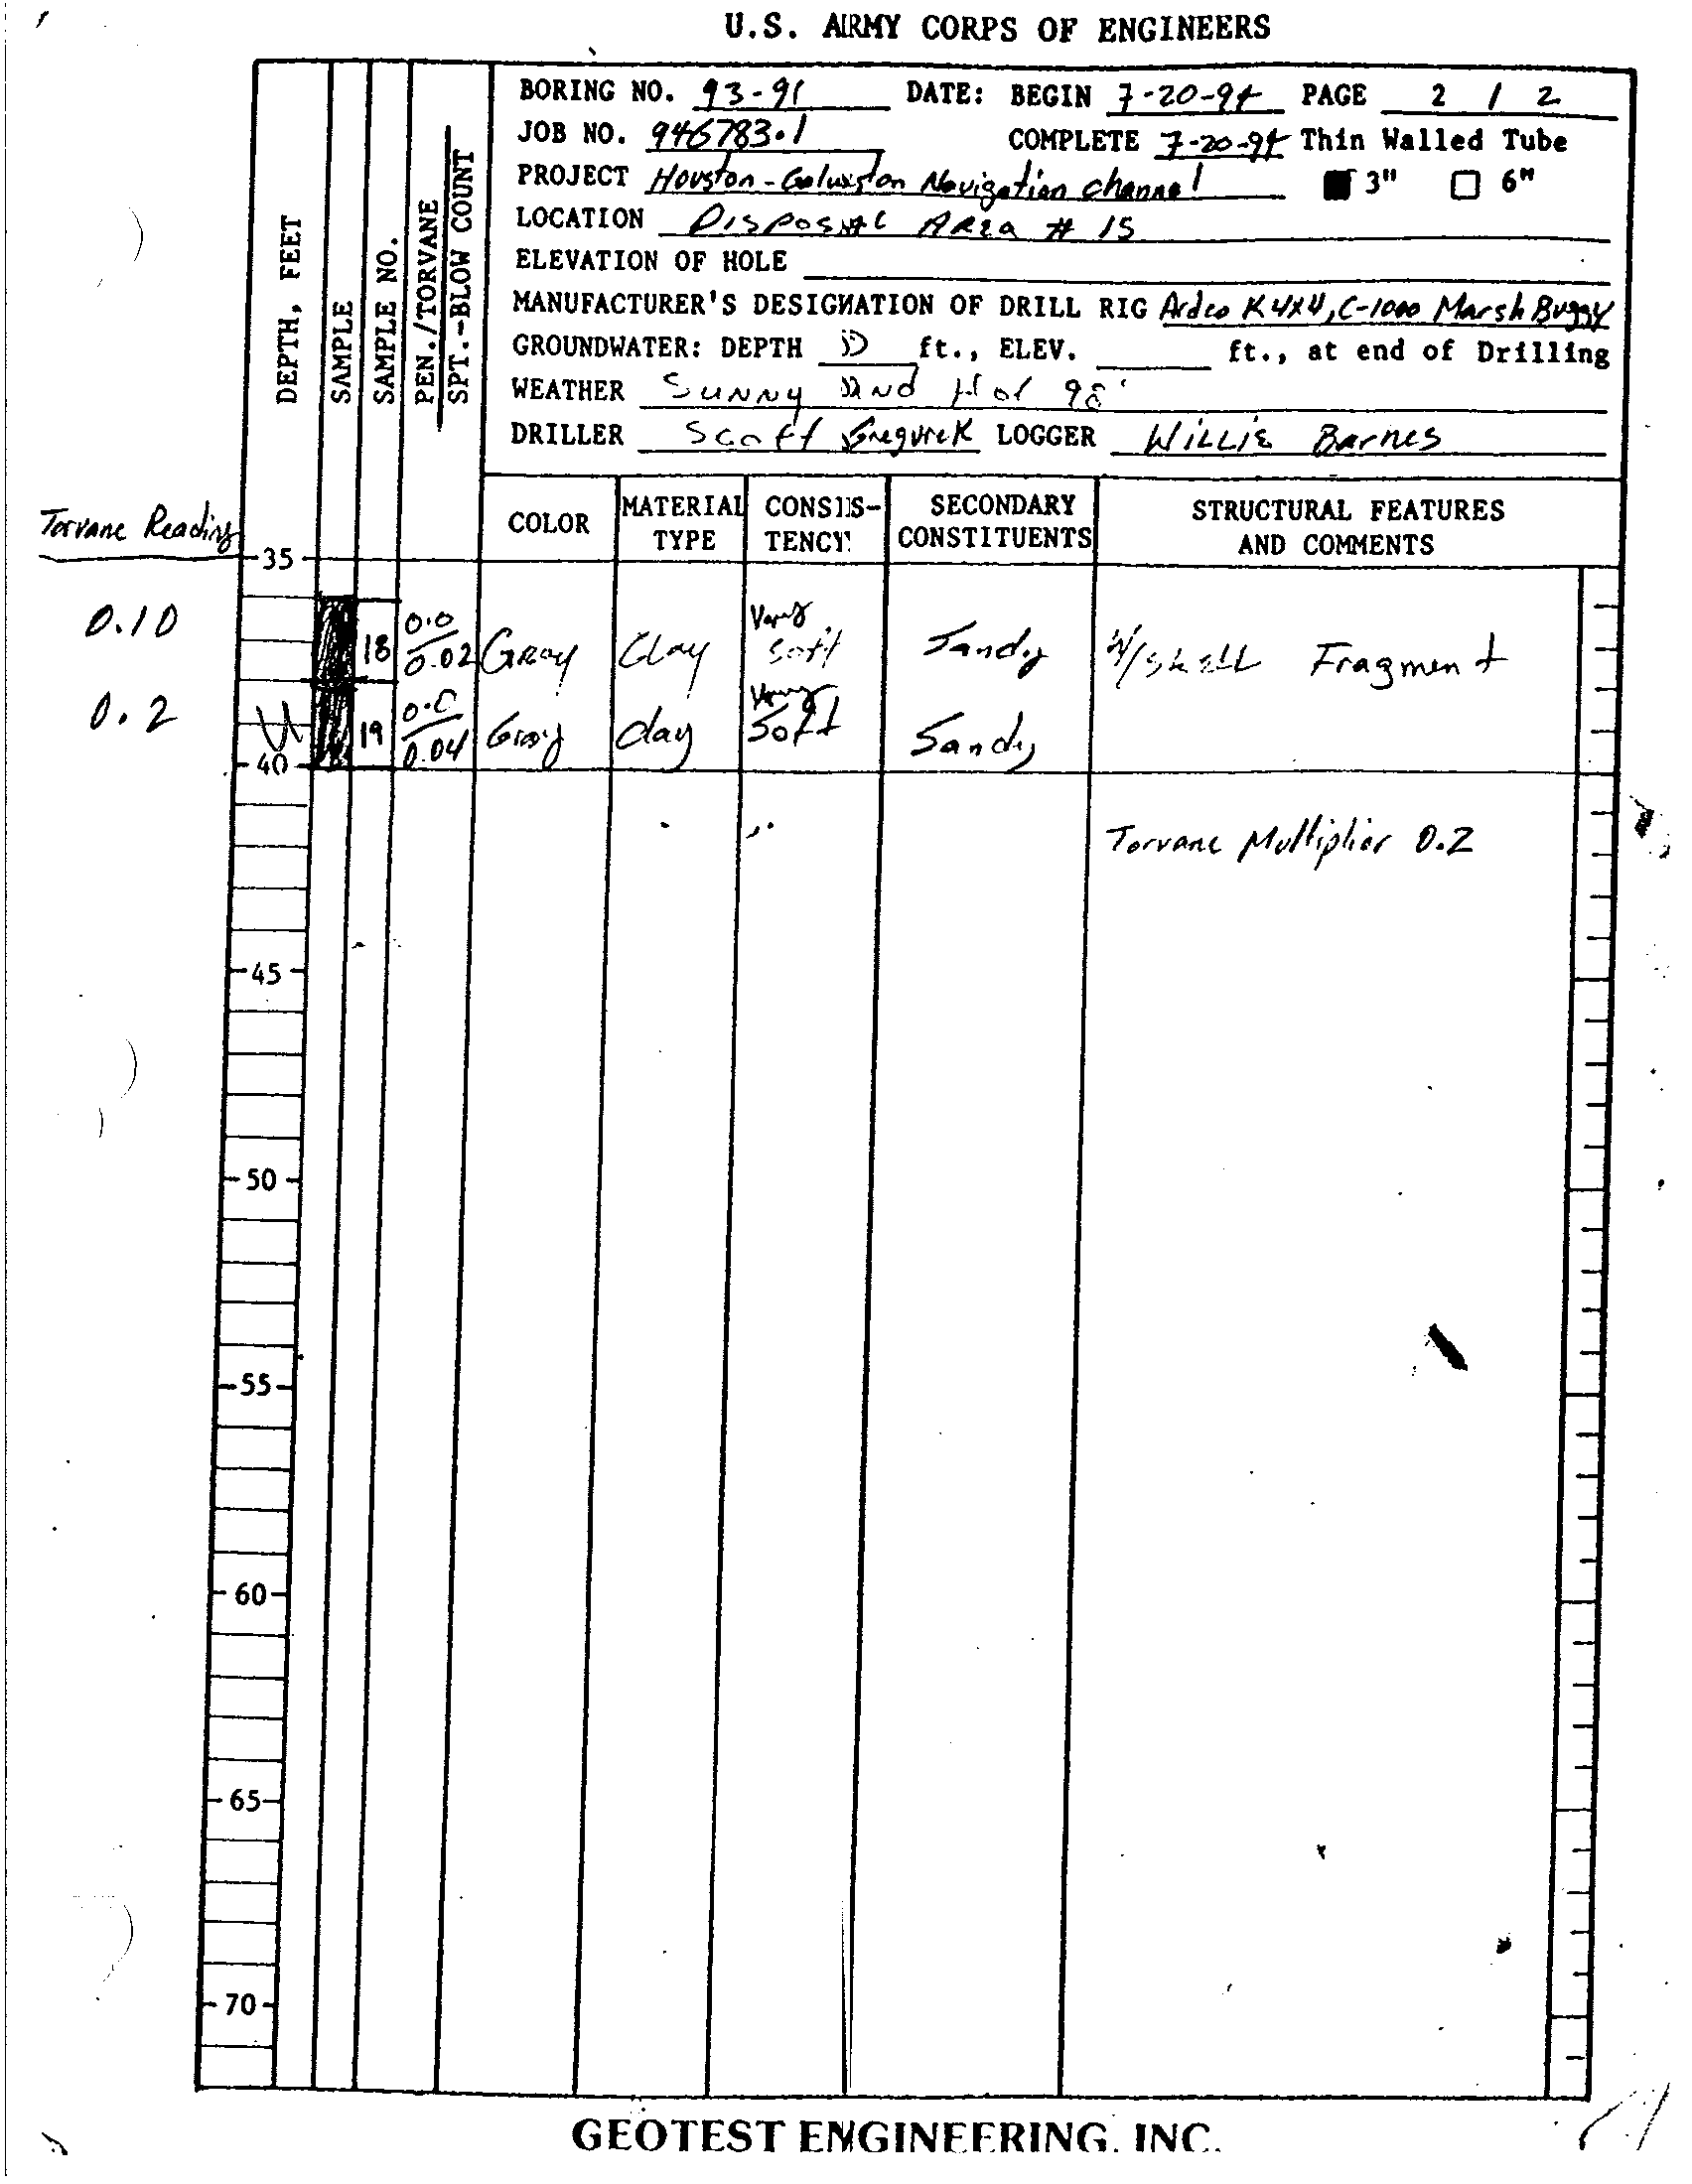 U.S. ARMY CORPS OF ENGINEERS
BORING NO. 93-91 DATE: BEGIN 7-20-94 PAGE 2 / 2
JOB NO. 946783.1 COMPLETE 7-20-94 Thin Walled Tube
PROJECT Houston-Galveston Navigation channel 3" 6"
LOCATION Disposal Area # 15
ELEVATION OF HOLE
MANUFACTURER'S DESIGNATION OF DRILL RIG Ardco K4x4, C-1000 Marsh Buggy
GROUNDWATER: DEPTH ft., ELEV. ft., at end of Drilling
WEATHER Sunny and Hot 98°
DRILLER Scott LOGGER Willie Barnes
DEPTH, FEET
SAMPLE
SAMPLE NO.
PEN./TORVANE
SPT.-BLOW COUNT
COLOR MATERIAL TYPE CONSIS-TENCY SECONDARY CONSTITUENTS STRUCTURAL FEATURES AND COMMENTS
Torvane Reading
35
0.10 18 0.0 / 0.02 Gray Clay Very Soft Sandy w/shell Fragment
0.2 19 0.0 / 0.04 Gray clay Very Soft Sandy
40
Torvane Multiplier 0.2
45
50
55
60
65
70
GEOTEST ENGINEERING, INC.